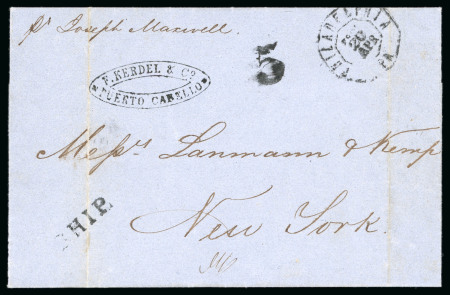 pr Joseph Maxwell.
PHILADELPHIA PA
20
APR
5
F. KERDEL & Co.
PUERTO CABELLO
Messrs Lanmann & Kemp
SHIP.
New York.